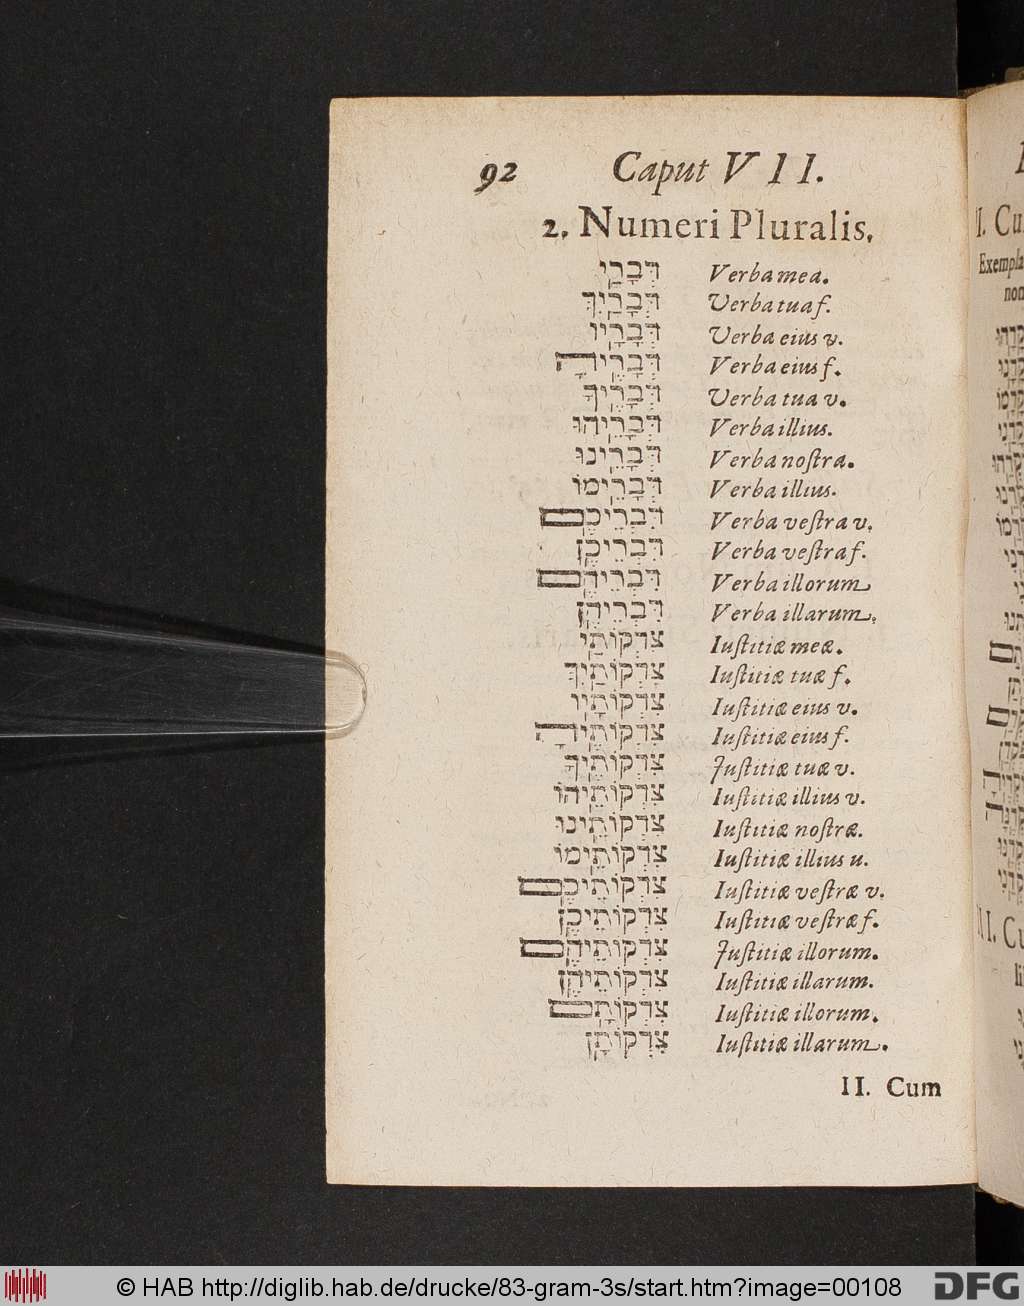 92 Caput VII.
2. Numeri Pluralis.
דְּבָרַי Verba mea.
דְּבָרַיִךְ Verba tua f.
דְּבָרָיו Verba eius v.
דְּבָרֶיהָ Verba eius f.
דְּבָרֶיךָ Verba tua v.
דְּבָרֵיהוּ Verba illius.
דְּבָרֵינוּ Verba nostra.
דְּבָרֵימוֹ Verba illius.
דִּבְרֵיכֶם Verba vestra v.
דִּבְרֵיכֶן Verba vestra f.
דִּבְרֵיהֶם Verba illorum
דִּבְרֵיהֶן Verba illarum.
צִדְקוֹתַי Iustitiæ meæ.
צִדְקוֹתַיִךְ Iustitiæ tuæ f.
צִדְקוֹתָיו Iustitiæ eius v.
צִדְקוֹתֶיהָ Iustitiæ eius f.
צִדְקוֹתֶיךָ Justitiæ tuæ v.
צִדְקוֹתֵיהוֹ Iustitiæ illius v.
צִדְקוֹתֵינוּ Iustitiæ nostræ.
צִדְקוֹתֵימוֹ Iustitiæ illius u.
צִדְקוֹתֵיכֶם Iustitiæ vestræ v.
צִדְקוֹתֵיכֶן Iustitiæ vestræ f.
צִדְקוֹתֵיהֶם Justitiæ illorum.
צִדְקוֹתֵיהֶן Iustitiæ illarum.
צִדְקוֹתָם Iustitiæ illorum.
צִדְקוֹתָן Iustitiæ illarum.
II. Cum
I. Cu
Exempla
non
© HAB http://diglib.hab.de/drucke/83-gram-3s/start.htm?image=00108
DFG